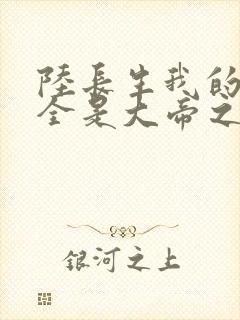 陸長生我的
全是大帝之
銀河之上